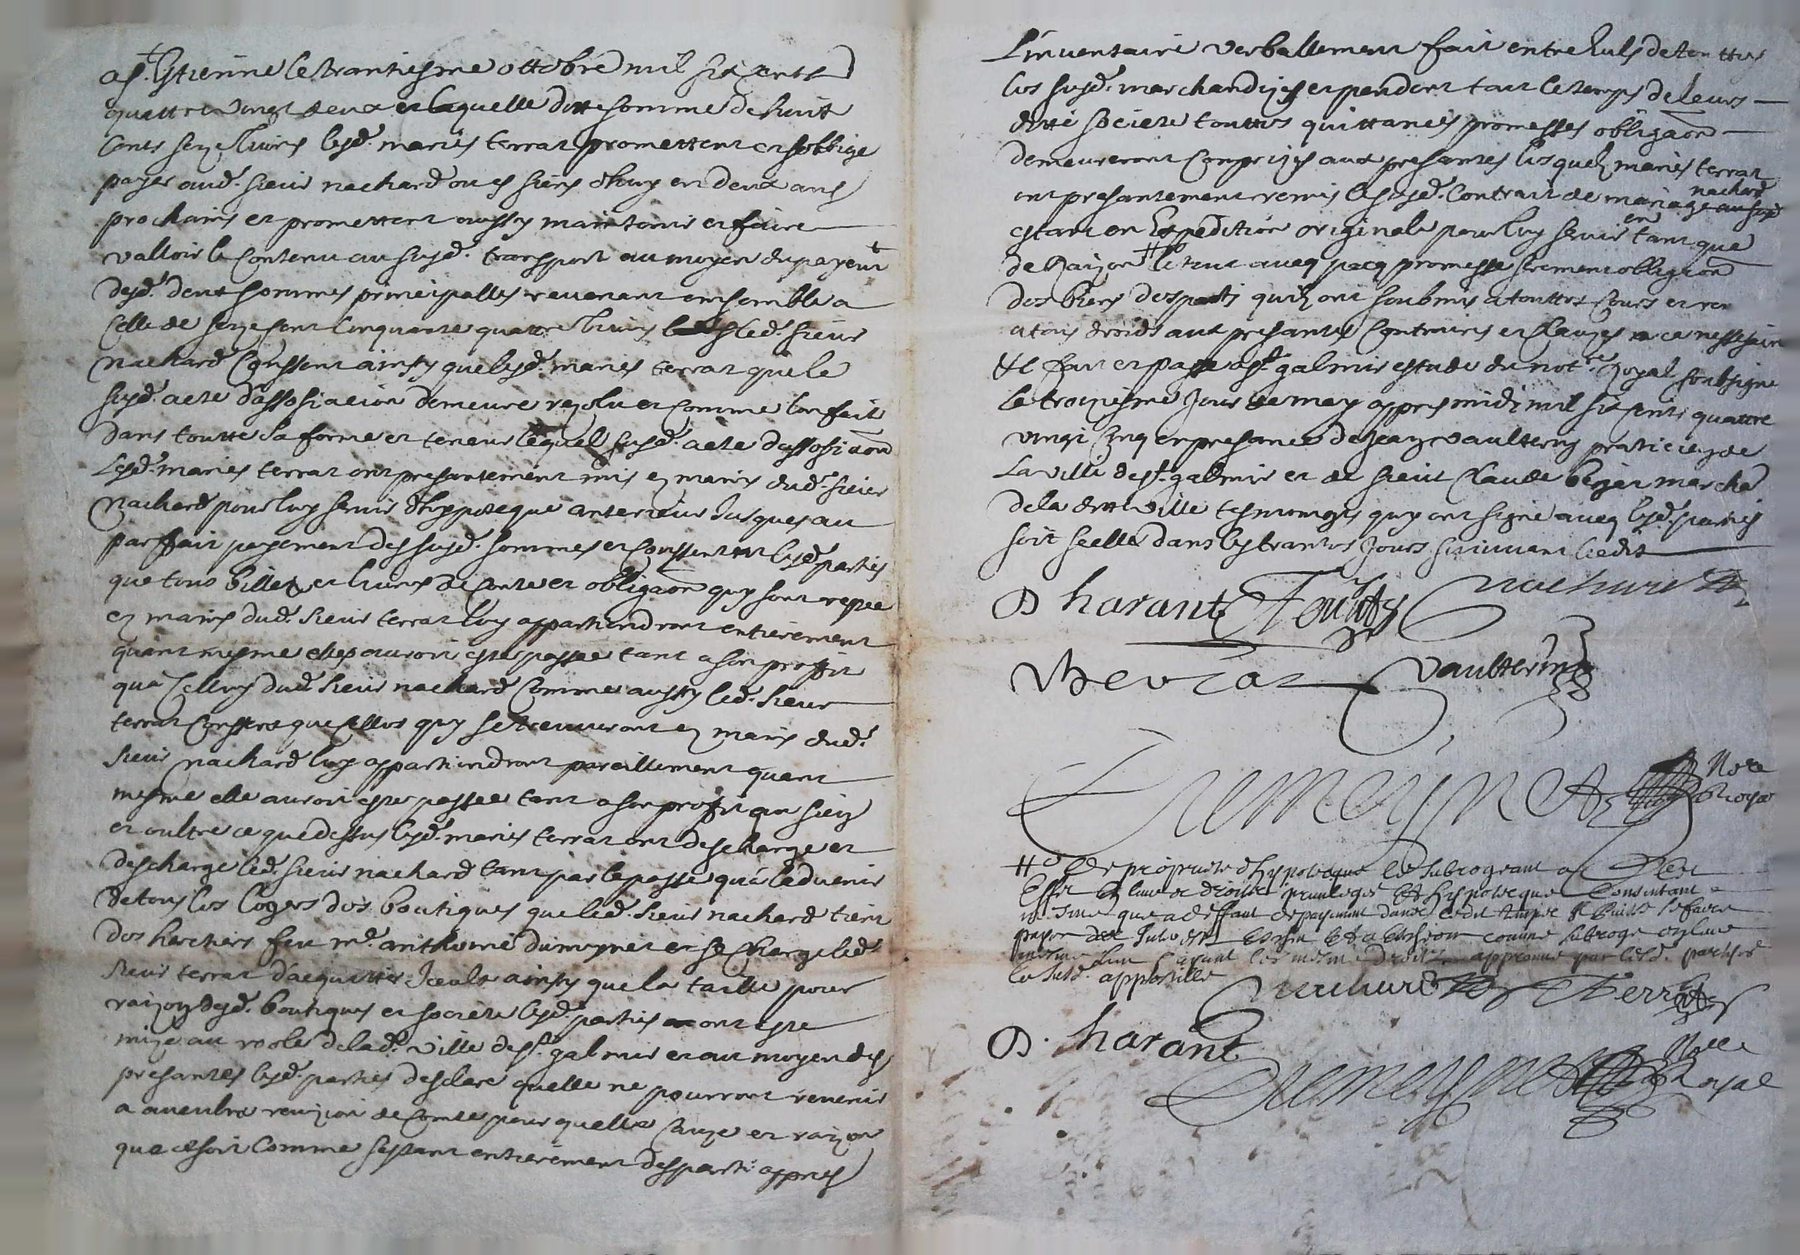 a St Estienne le trantiesme ottobre mil six cents
quattre vingt deux et laquelle ditte somme de huit
cents seze livres lesd. mariés terrat promettent et sobblige
payer aud. sieur nachard ou es siens dhuy en deux ans
prochains et promettent aussy maintenir et faire
valloir le contenu au susd. transport au moyen du payemt
desd. deux sommes principalles revenant ensemble a
celle de seze sent cinquante quattre livres led. sieur
nachard consent ainsy que lesd. mariés terrat que le
susd. acte dassosiacion demeure rezolu et comme non fait
dans toutte sa forme et teneur lequel susd. acte dassosiaon
lesd. mariés terrat ont presantement mis en mains dud. sieur
nachard pour luy servir dhyppoteque anterieur jusques au
parffait payement des susd. sommes et consentent lesd. parties
que tous billets et livres de conte et obligaon quy sont
en mains dud. sieur terrat luy appartiendront entierement
quant mesme elles auroit este passee tant a son proffit
qua celluy dud. sieur nachard comme aussy led. sieur
terrat consent que celles quy se treuveront en mains dud.
sieur nachard luy appartiendront pareillement quant
mesme elle auroit este passee tant a son proffit qu sien
et oultre ce que dessus lesd. mariés terrat ont descharge et
descharge led. sieur nachard tant par le passé qua ladvenir
de tous les loyers des boutiques que led. sieur nachard tient
des heritiers feu me. anthoine dumoynet et se charge led.
sieur terrat dacquitter iceulx ainsy que la taille pour
raizon desd. boutiques et societe lesd. parties ont este
mize au rosle de lad. ville de St galmier et au moyen des
presantes lesd. parties desclare quelle ne pourront revenir
a aucune revizion de comte pour quelle cauze et raizon
que ce soit comme sestant entierement desparti appres
Linventaire verballement fait entre eulx de touttes
les susd. marchandizes et pendent tant le temps de leurs
ditte sociéte touttes quittances promesses obligaon
demeureront comprizes aux presantes lesquels mariés terrat
ont presantement remis le susd. contrait de mariage au sieur
nachard
estant en expedition originale pour luy servir en tant que
de raizon # le tout avec pacq promesse serement obligaon
des biens des parti quils ont soubmis a touttes cours et ren
a tous droids aux presantes contraires et clauzes necessaire
fait et passe a St galmier estude du notre royal soubsigne
le troiziesme jour de may appres midi mil six cents quattre
vingt cinq en presance de jean vaulterin praticien de
la ville de St galmier et de sieur Claude marchd
de la ditte ville tesmoings quy ont signe avec lesd. parties
soit scelle dans les trantes jours suivant ledit
D harant Terrat nachard
vaulterin
Dumeynet Nore
Royal
de propriete dhypoteque le subrogeant a
lieu droits privilege et hypoteque consentant
mesme que a deffaut de payement dans ledit temps il puisse se faire
payer comme subroge en leur
mesme lieu les mesme droits approuve par lesd. parties
la susd. appostille
nachard Terrat
D. harant
Dumeynet Nore
Royal